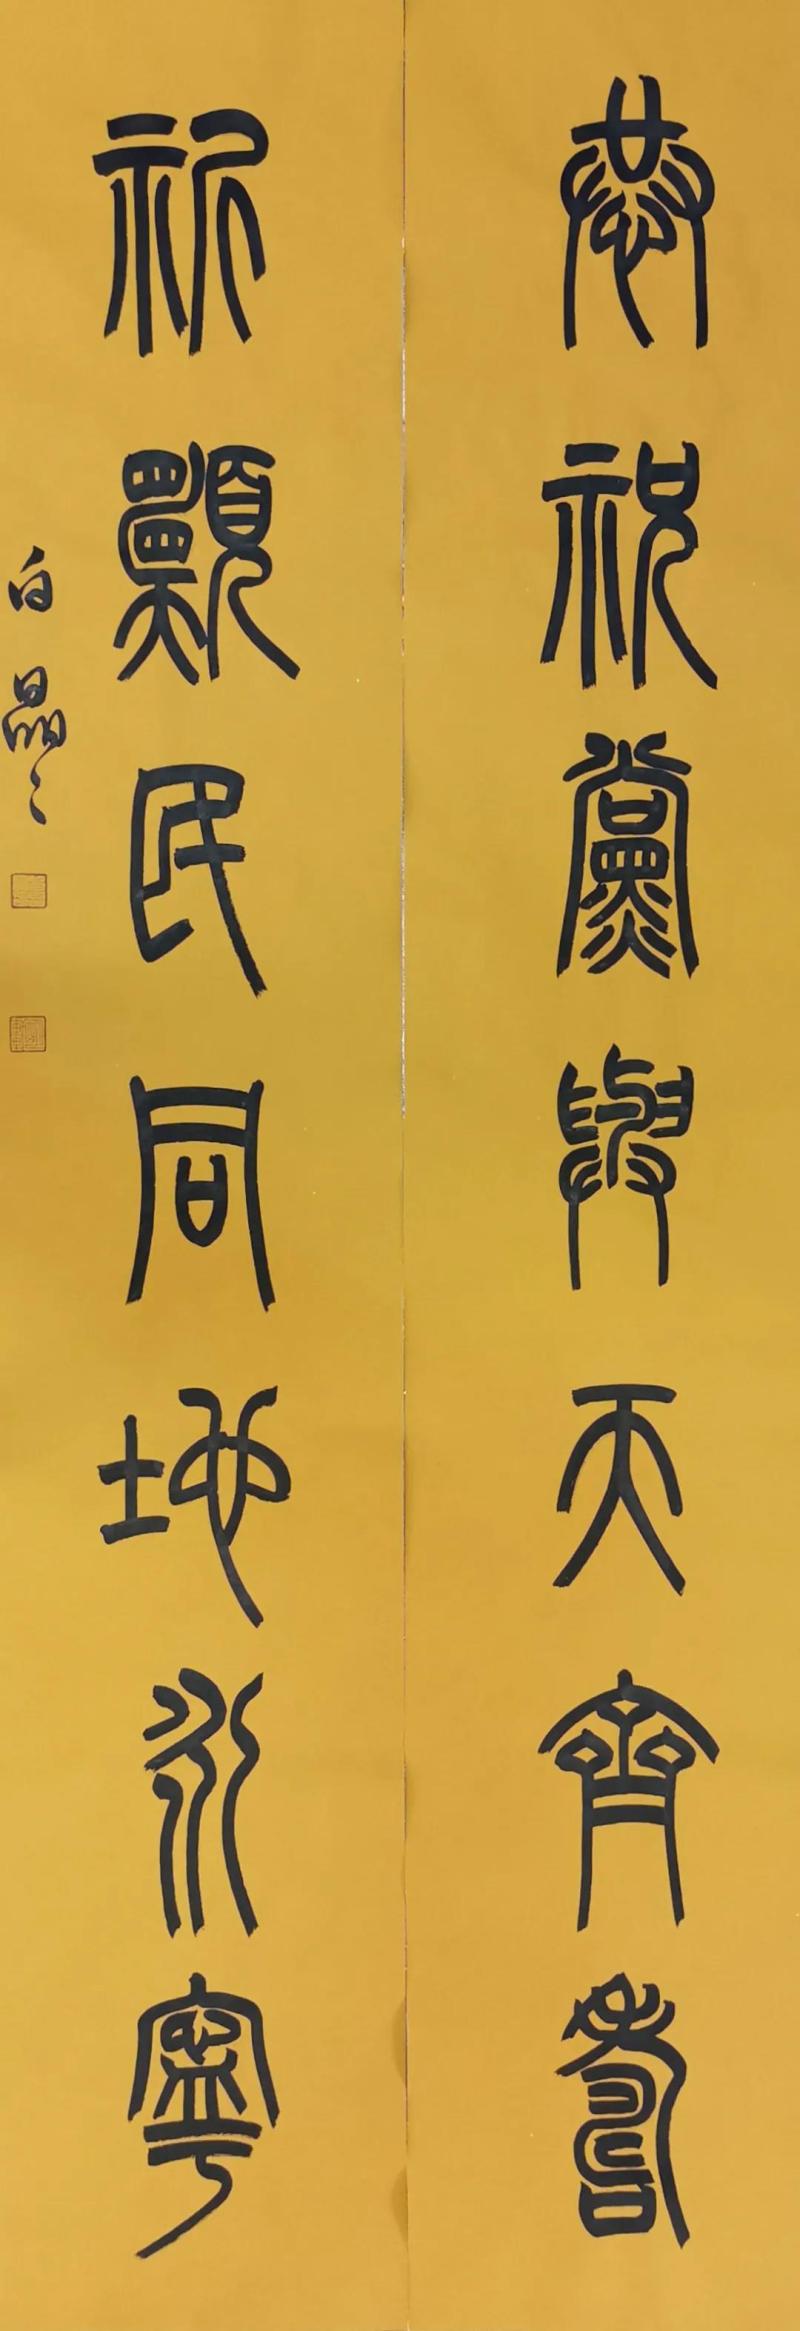 恭祝黨與天齊壽
祈願民同地永寧
白晶々